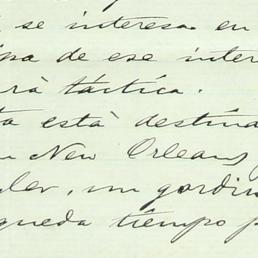 se interesa en
de ese inter
rà tàctica.
ta està destina
New Orleans,
ler, un gordin
queda tiempo p